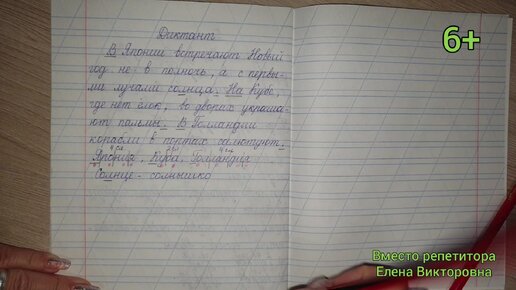 Диктант
В Японии встречают Новый
год не в полночь, а с первы-
ми лучами солнца. На Кубе,
где нет ёлок, во дворах украша-
ют пальмы. В Голландии
корабли в портах салютуют.
Япония, Куба, Голландия
Солнце - солнышко
6+
Вместо репетитора
Елена Викторовна